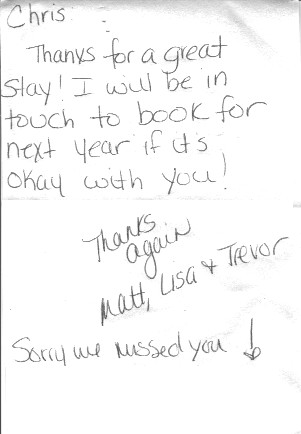 Chris :
Thanks for a great
Stay! I will be in
touch to book for
next year if it's
okay with you!
Thanks
again
Matt, Lisa & Trevor
Sorry we missed you ↓